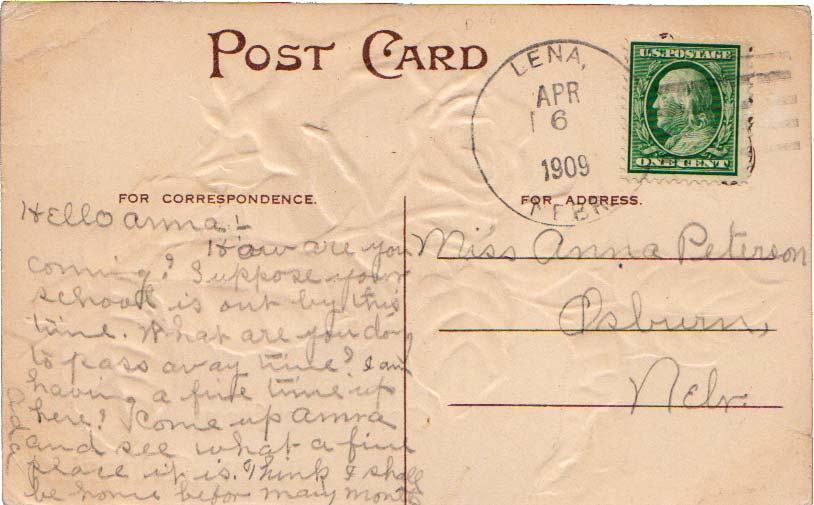 POST CARD
LENA,
APR
6
1909
NEBR.
U.S. POSTAGE
ONE CENT
FOR CORRESPONDENCE.
FOR ADDRESS.
Hello Anna!
How are you
coming? Suppose your
school is out by this
time. What are you doing
to pass away time? I am
having a fine time up
here! Come up Anna
and see what a fine
place it is. Think I shall
be home befor many months
Miss Anna Peterson
Osburn,
Nebr.